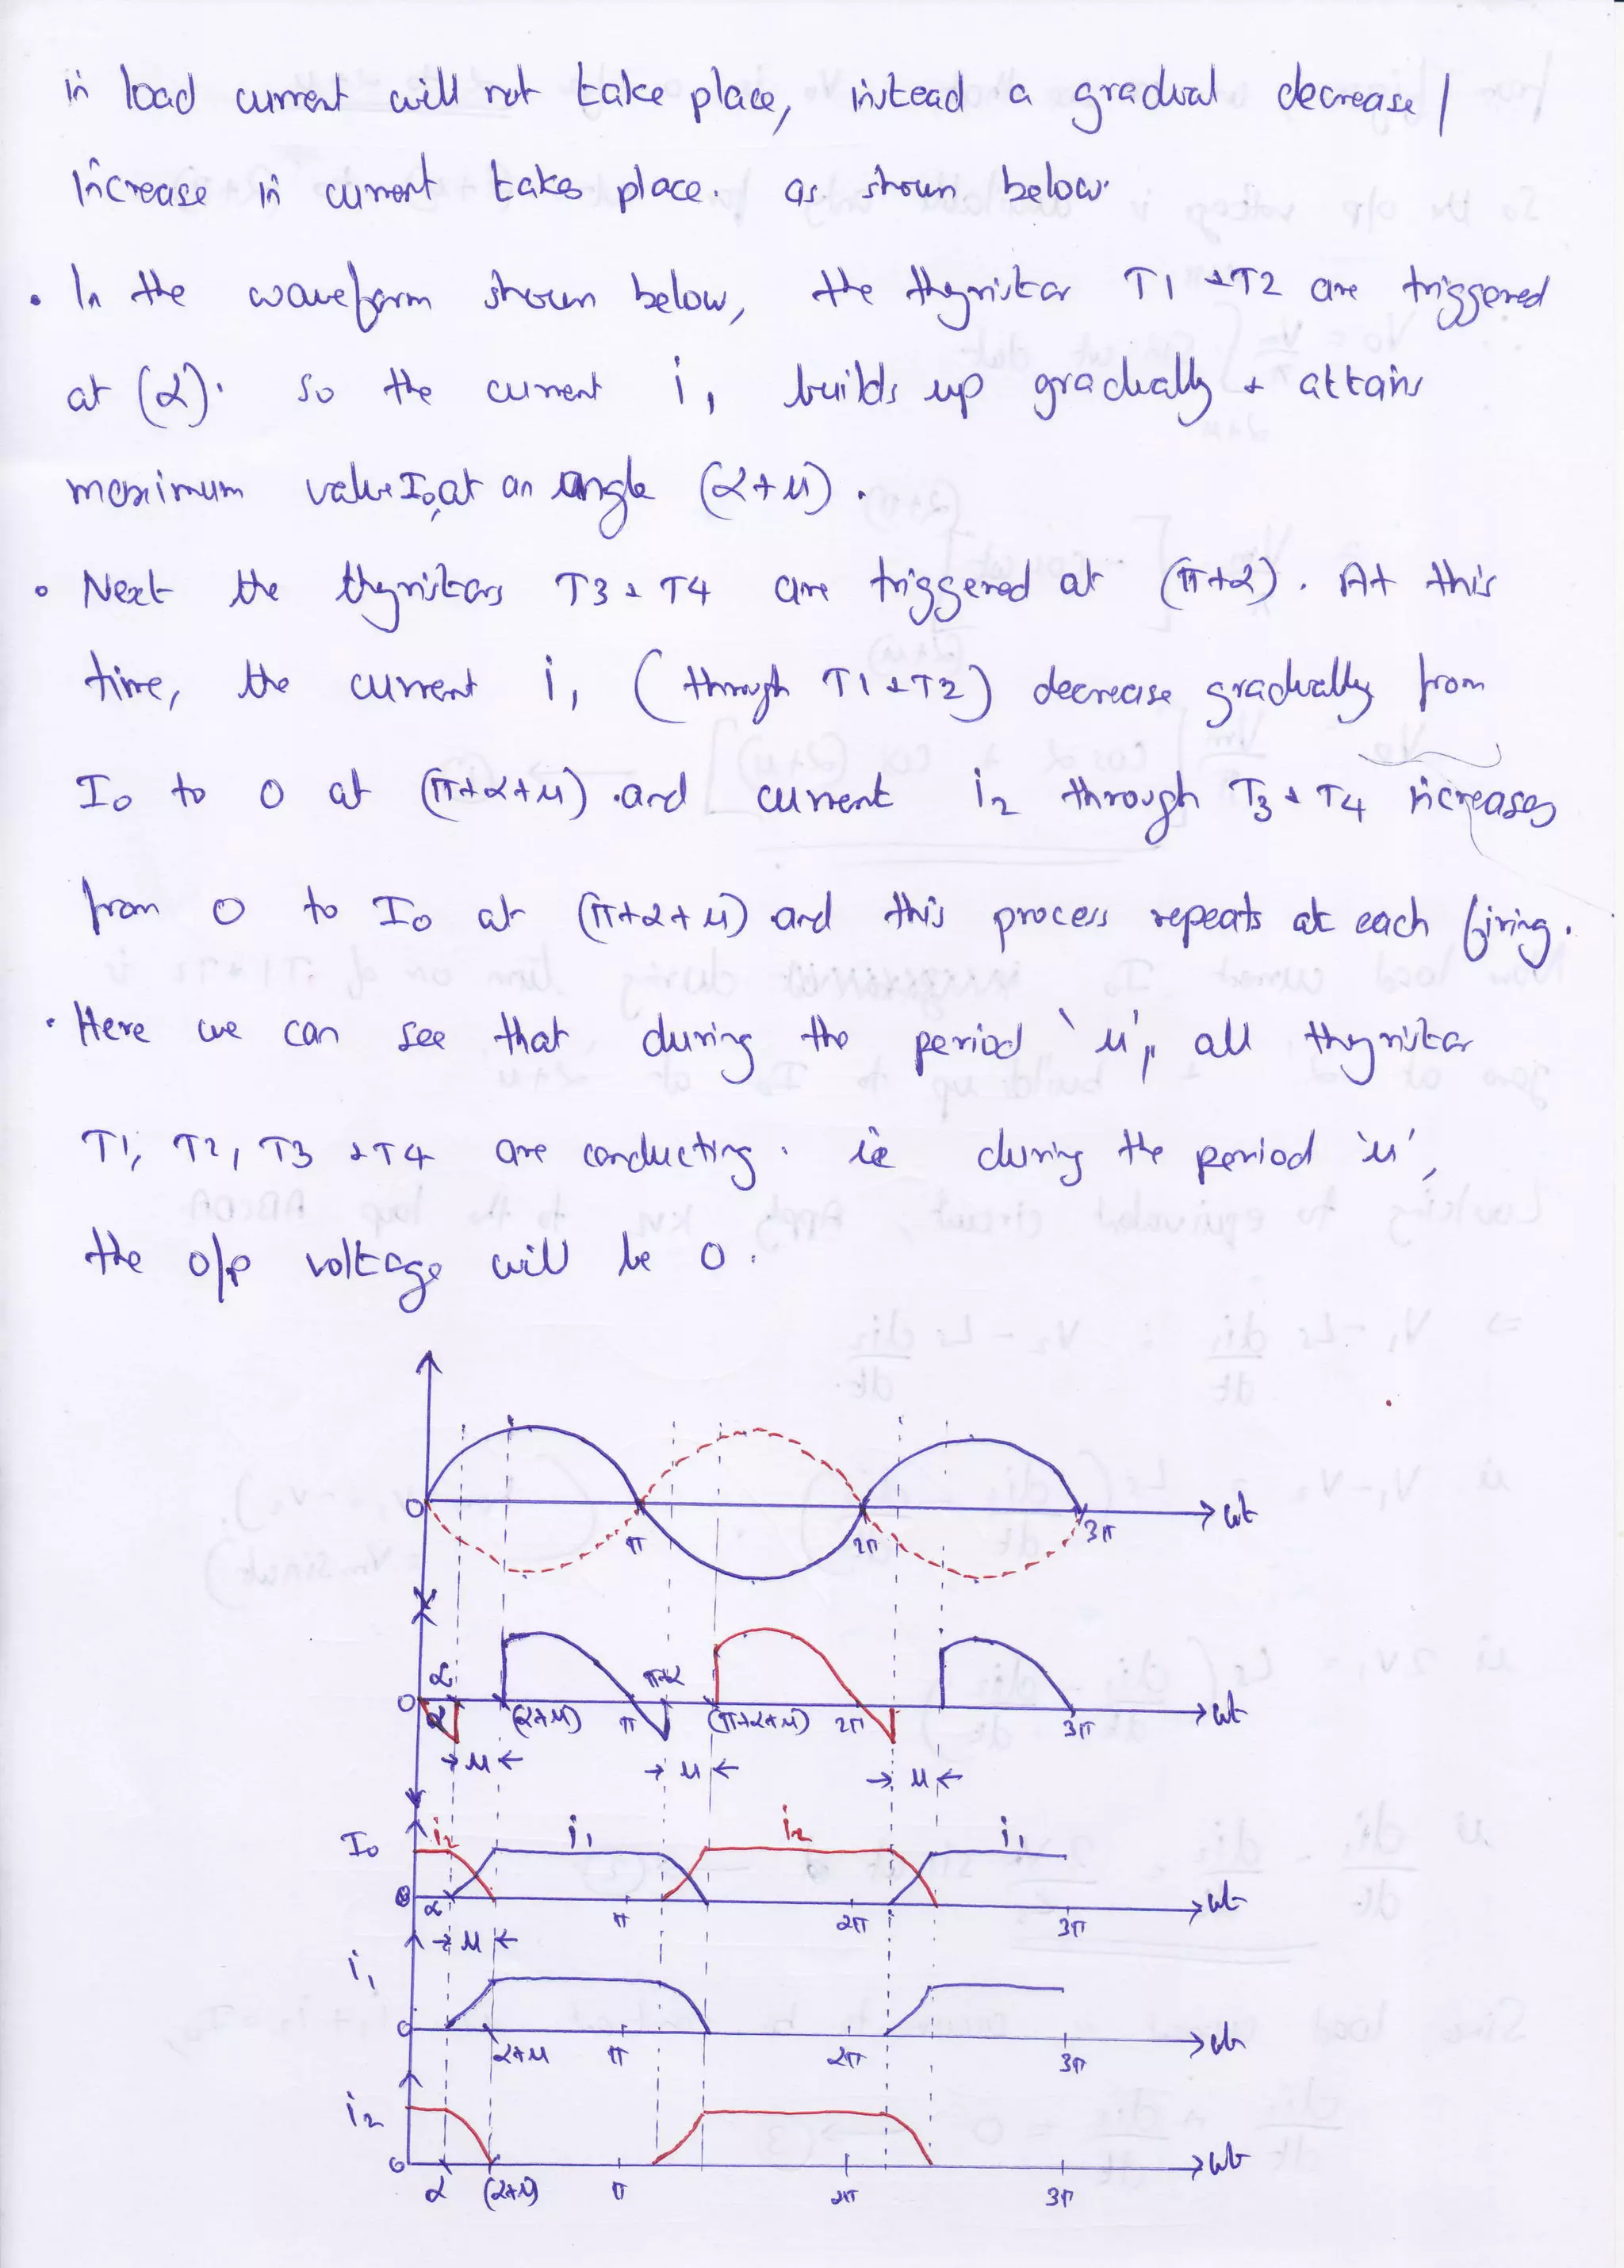 in load current will not take place, instead a gradual decrease/
increase in current takes place. as shown below.
• In the waveform shown below, the thyristor T1 & T2 are triggered
at (α). So the current i1 builds up gradually & attains
maximum value I0, at an angle (α+μ).
• Next the thyristors T3 & T4 are triggered at (π+α). At this
time, the current i1 (through T1 & T2) decrease gradually from
I0 to 0 at (π+α+μ) and current i2 through T3 & T4 increases
from 0 to I0 at (π+α+μ) and this process repeats at each firing.
• Here we can see that during the period 'μ', all thyristor
T1, T2, T3 & T4 are conducting. ie during the period 'μ',
the o/p voltage will be 0.
0 π 2π 3π ωt
α π+α
0 α (α+μ) π (π+α+μ) 2π 3π ωt
μ μ μ
I0 i2 i1 i2 i1
0 α π 2π 3π ωt
μ
i1
0 α+μ π 2π 3π ωt
i2
0 α (α+μ) π 2π 3π ωt